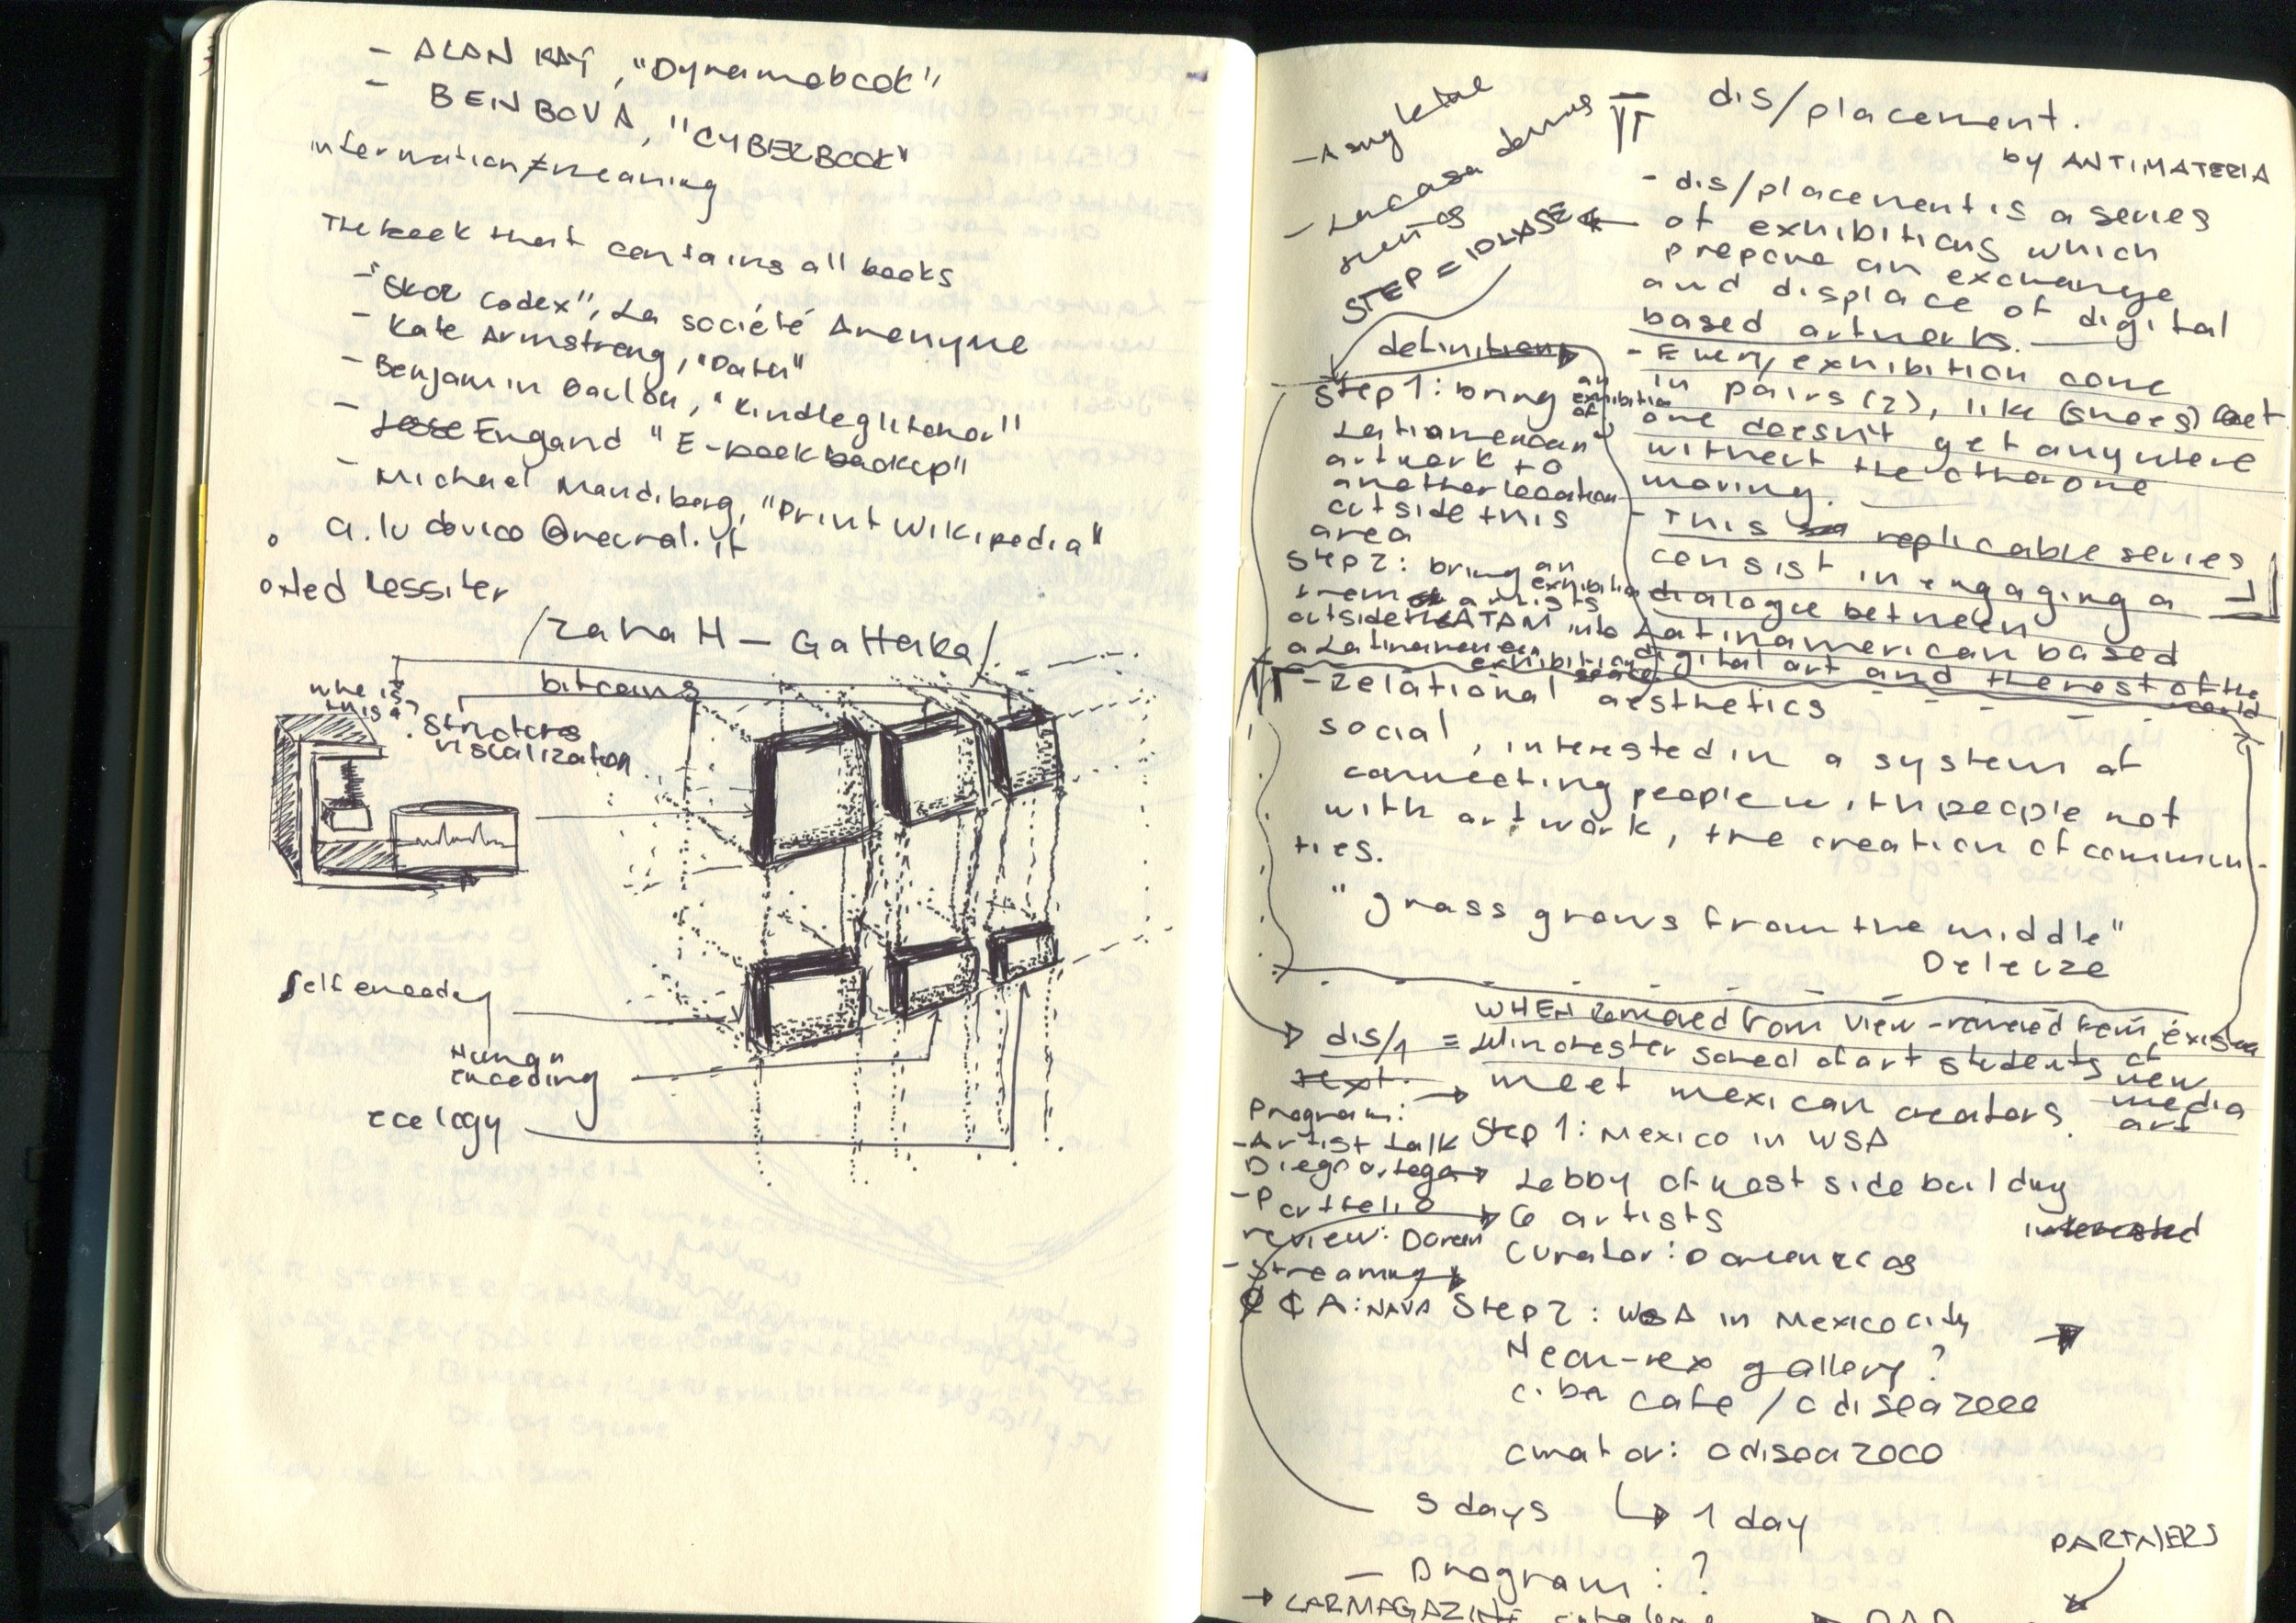 - ALAN KAY, "Dynamobook"
- BEN BOVA, "CYBERBOOK"
information≠meaning
The book that contains all books
- "Skor Codex", La société Anonyme
- Kate Armstrong, "Path"
- Benjamin Gaulon, "Kindleglitcher"
- Jesse Engand "E-book backup"
- Michael Mandiberg, "Print Wikipedia"
o a.ludovico @neural.it
o Ned Rossiter
/Zaha H - Gatterka/
who is this?
bitcoins
structors visualization
Self encoding
Human encoding
ecology
dis/placement.
by ANTIMATERIA
- La casa
STEP = 
- dis/placement is a series
of exhibitions which
propone an exchange
and displace of digital
based artworks.
definition
- Every exhibition come
in pairs (2), like (shoes)
one doesn't get anywhere
without the other one
moving.
- This replicable series
consist in engaging a
dialogue between
Latinamerican based
digital art and the rest of the
world
Step 1: bring an exhibition of
Latiamerican
artwork to
another location
outside this
area
Step 2: bring an exhibition
from artists
outside LATAM into
a Latinamerican
exhibition space
- Relational aesthetics
social, interested in a system of
connecting people with people not
with artwork, the creation of commun-
ties.
"grass grows from the middle"
Deleuze
WHEN Removed from view - removed from existen
dis/1 = Winchester school of art students of
new
media
art
text. → meet mexican creators.
Program:
- Artist talk
Diego ortega
- Portfolio
review: Doreen
- Streaming
A: NAVA
Step 1: Mexico in WSA
Lobby of west side building
6 artists
interested
curator: Doreen Rios
Step 2: WSA in Mexico City
Near-rex gallery?
cafe / odisea 2000
curator: odisea 2000
5 days ↳ 1 day
PARTNERS
- Program: ?